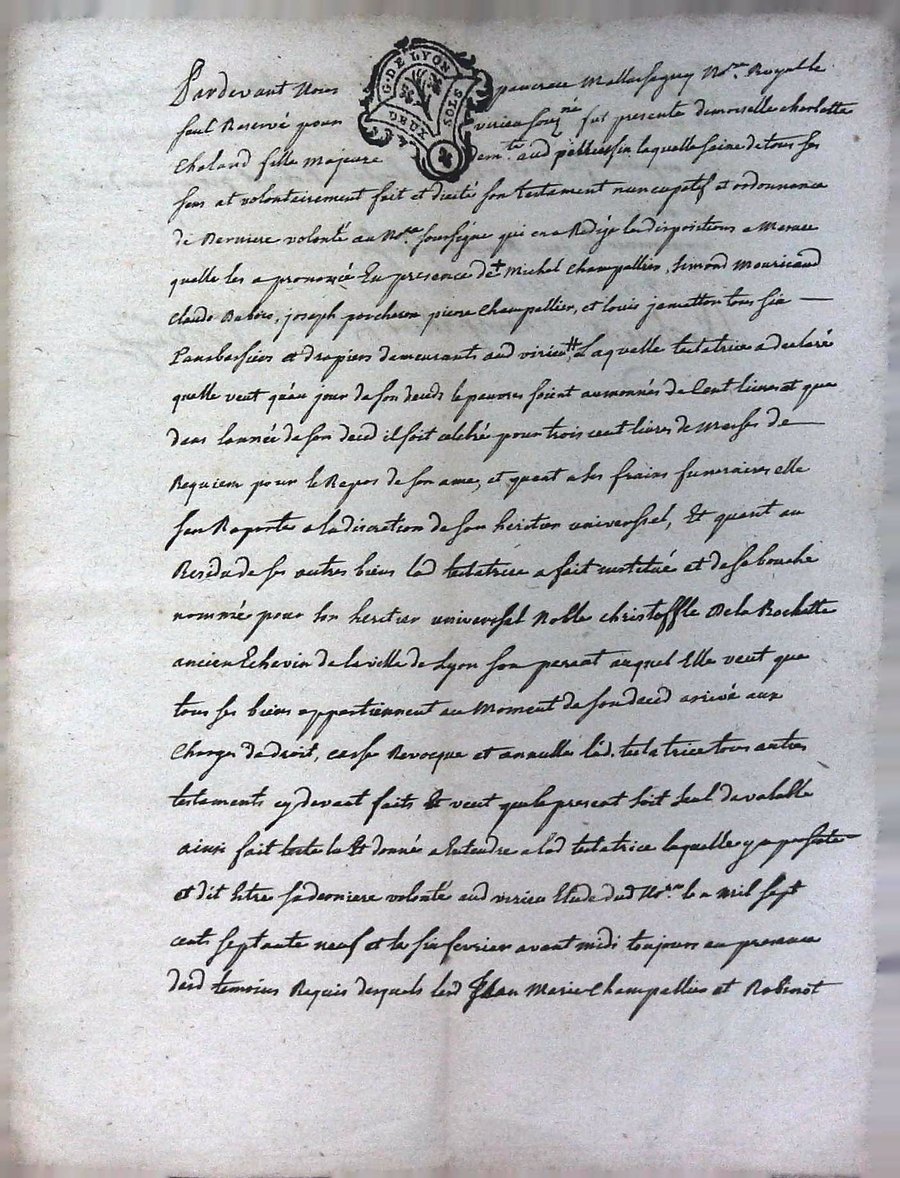 G. DE LYON
DEUX SOLS
Pardevant Nous pancrace Nore. Royalle
seul Reservé pour virieu fut presente demoiselle charlotte
Chaland fille majeure aud laquelle saine de tous ses
sens et volontairement fait et dicté son testament nuncupatif et ordonnance
de Derniere volonté au Nore. soussigné qui en a Redigé les dispositions a Mesure
quelle les a prononcé En presence de Michel champallier, simond mouricaud
Claude joseph porcheron pierre Champallier, et louis tous six
et drapiers demeurants aud virieu Laquelle testatrice a declaré
quelle veut quau jour de son deceds le pauvres soient aumonnés de Cent livres et que
dans lannée de son deced il soit celebré pour trois cent livres de Messes de
Requiem pour le Repos de son ame, et quant a ses frais funeraires elle
sen Raporte a la discretion de son heritier universsel, Et quant au
Residu de ses autres biens lad testatrice a fait institué et de sa bouche
nommé pour son heritier universel Noble christoffle De la Rochette
ancien Echevin de la ville de Lyon son parent auquel Elle veut que
tous ses biens appartiennent au Moment de son deced arivé aux
Charges De droit, casse Revocque et annulle lad. testatrice tous autres
testaments cy devant faits Et veut que le present soit seul de valable
ainsi fait leu Et donné a Entendre a lad testatrice laquelle y a persisté
et dit Etre sa derniere volonté aud virieu Etude dud Nore. le a Mil sept
cents septante neuf et le six fevrier avant midi toujours en presence
desd temoins Requis desquels lesd Jean Marie Champallier et Robinot